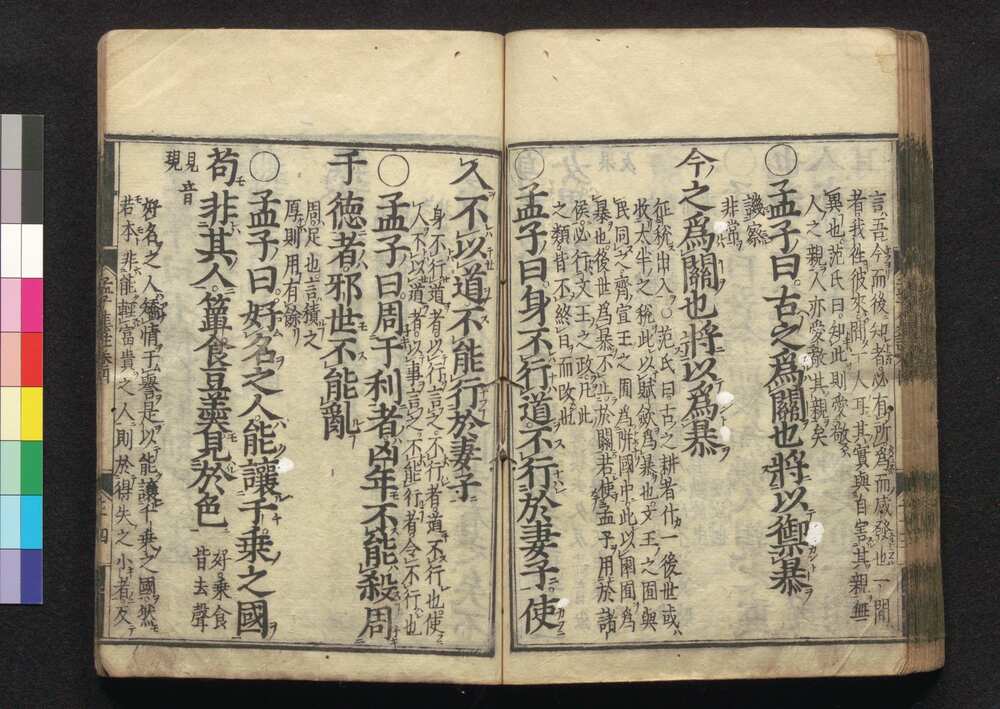 言吾今而後知者必有所爲而感發也一間
者我往彼來間一人耳其實與自害其親無
異也范氏曰知此則愛敬
人之親人亦愛敬其親矣
○孟子曰古之爲關也將以禦暴
譏察
非常
今之爲關也將以爲暴
征稅出入○范氏曰古之耕者什一後世或
收大半之稅此以賦斂爲暴也文王之囿與
民同之齊宣王之囿爲阱國中此以園囿爲
暴也後世爲暴不止於關若使孟子用於諸
侯必行文王之政凡此
之類皆不終日而改也
○孟子曰身不行道不行於妻子使
人不以道不能行於妻子
身不行道者以行言之不行者道不行也使
人不以道者以事言之不能行者令不行也
○孟子曰周于利者凶年不能殺周
于德者邪世不能亂
周足也言積之
厚則用有餘
○孟子曰好名之人能讓千乘之國
苟非其人簞食豆羹見於色
好乘食
皆去聲
見音
現
好名之人矯情干譽是以能讓千乘之國然
若本非能輕富貴之人則於得失之小者反